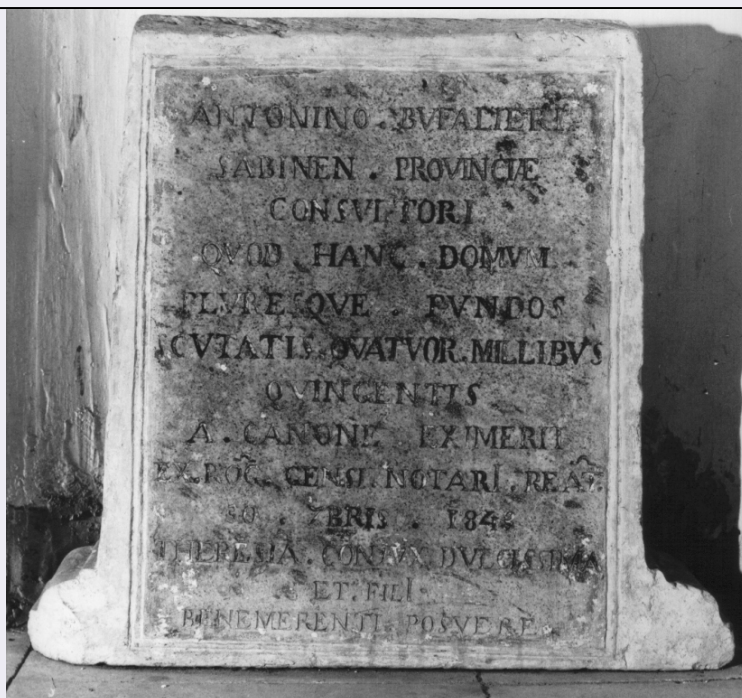 ANTONINO . BVFALIERI
SABINEN . PROVINCIÆ
CONSVLTORI
QVOD . HANC . DOMVM
PLVRESQVE . FVNDOS
SCVTATIS . QVATVOR . MILLIBVS
QVINGENTIS
A . CANONE EXIMERIT
ROG . CENSI . NOTARI . REAT.
BRIS . 184
THERESIA . CONIVX DVLCISSIMA
ET . FILI
BENEMERENTI . POSVERE